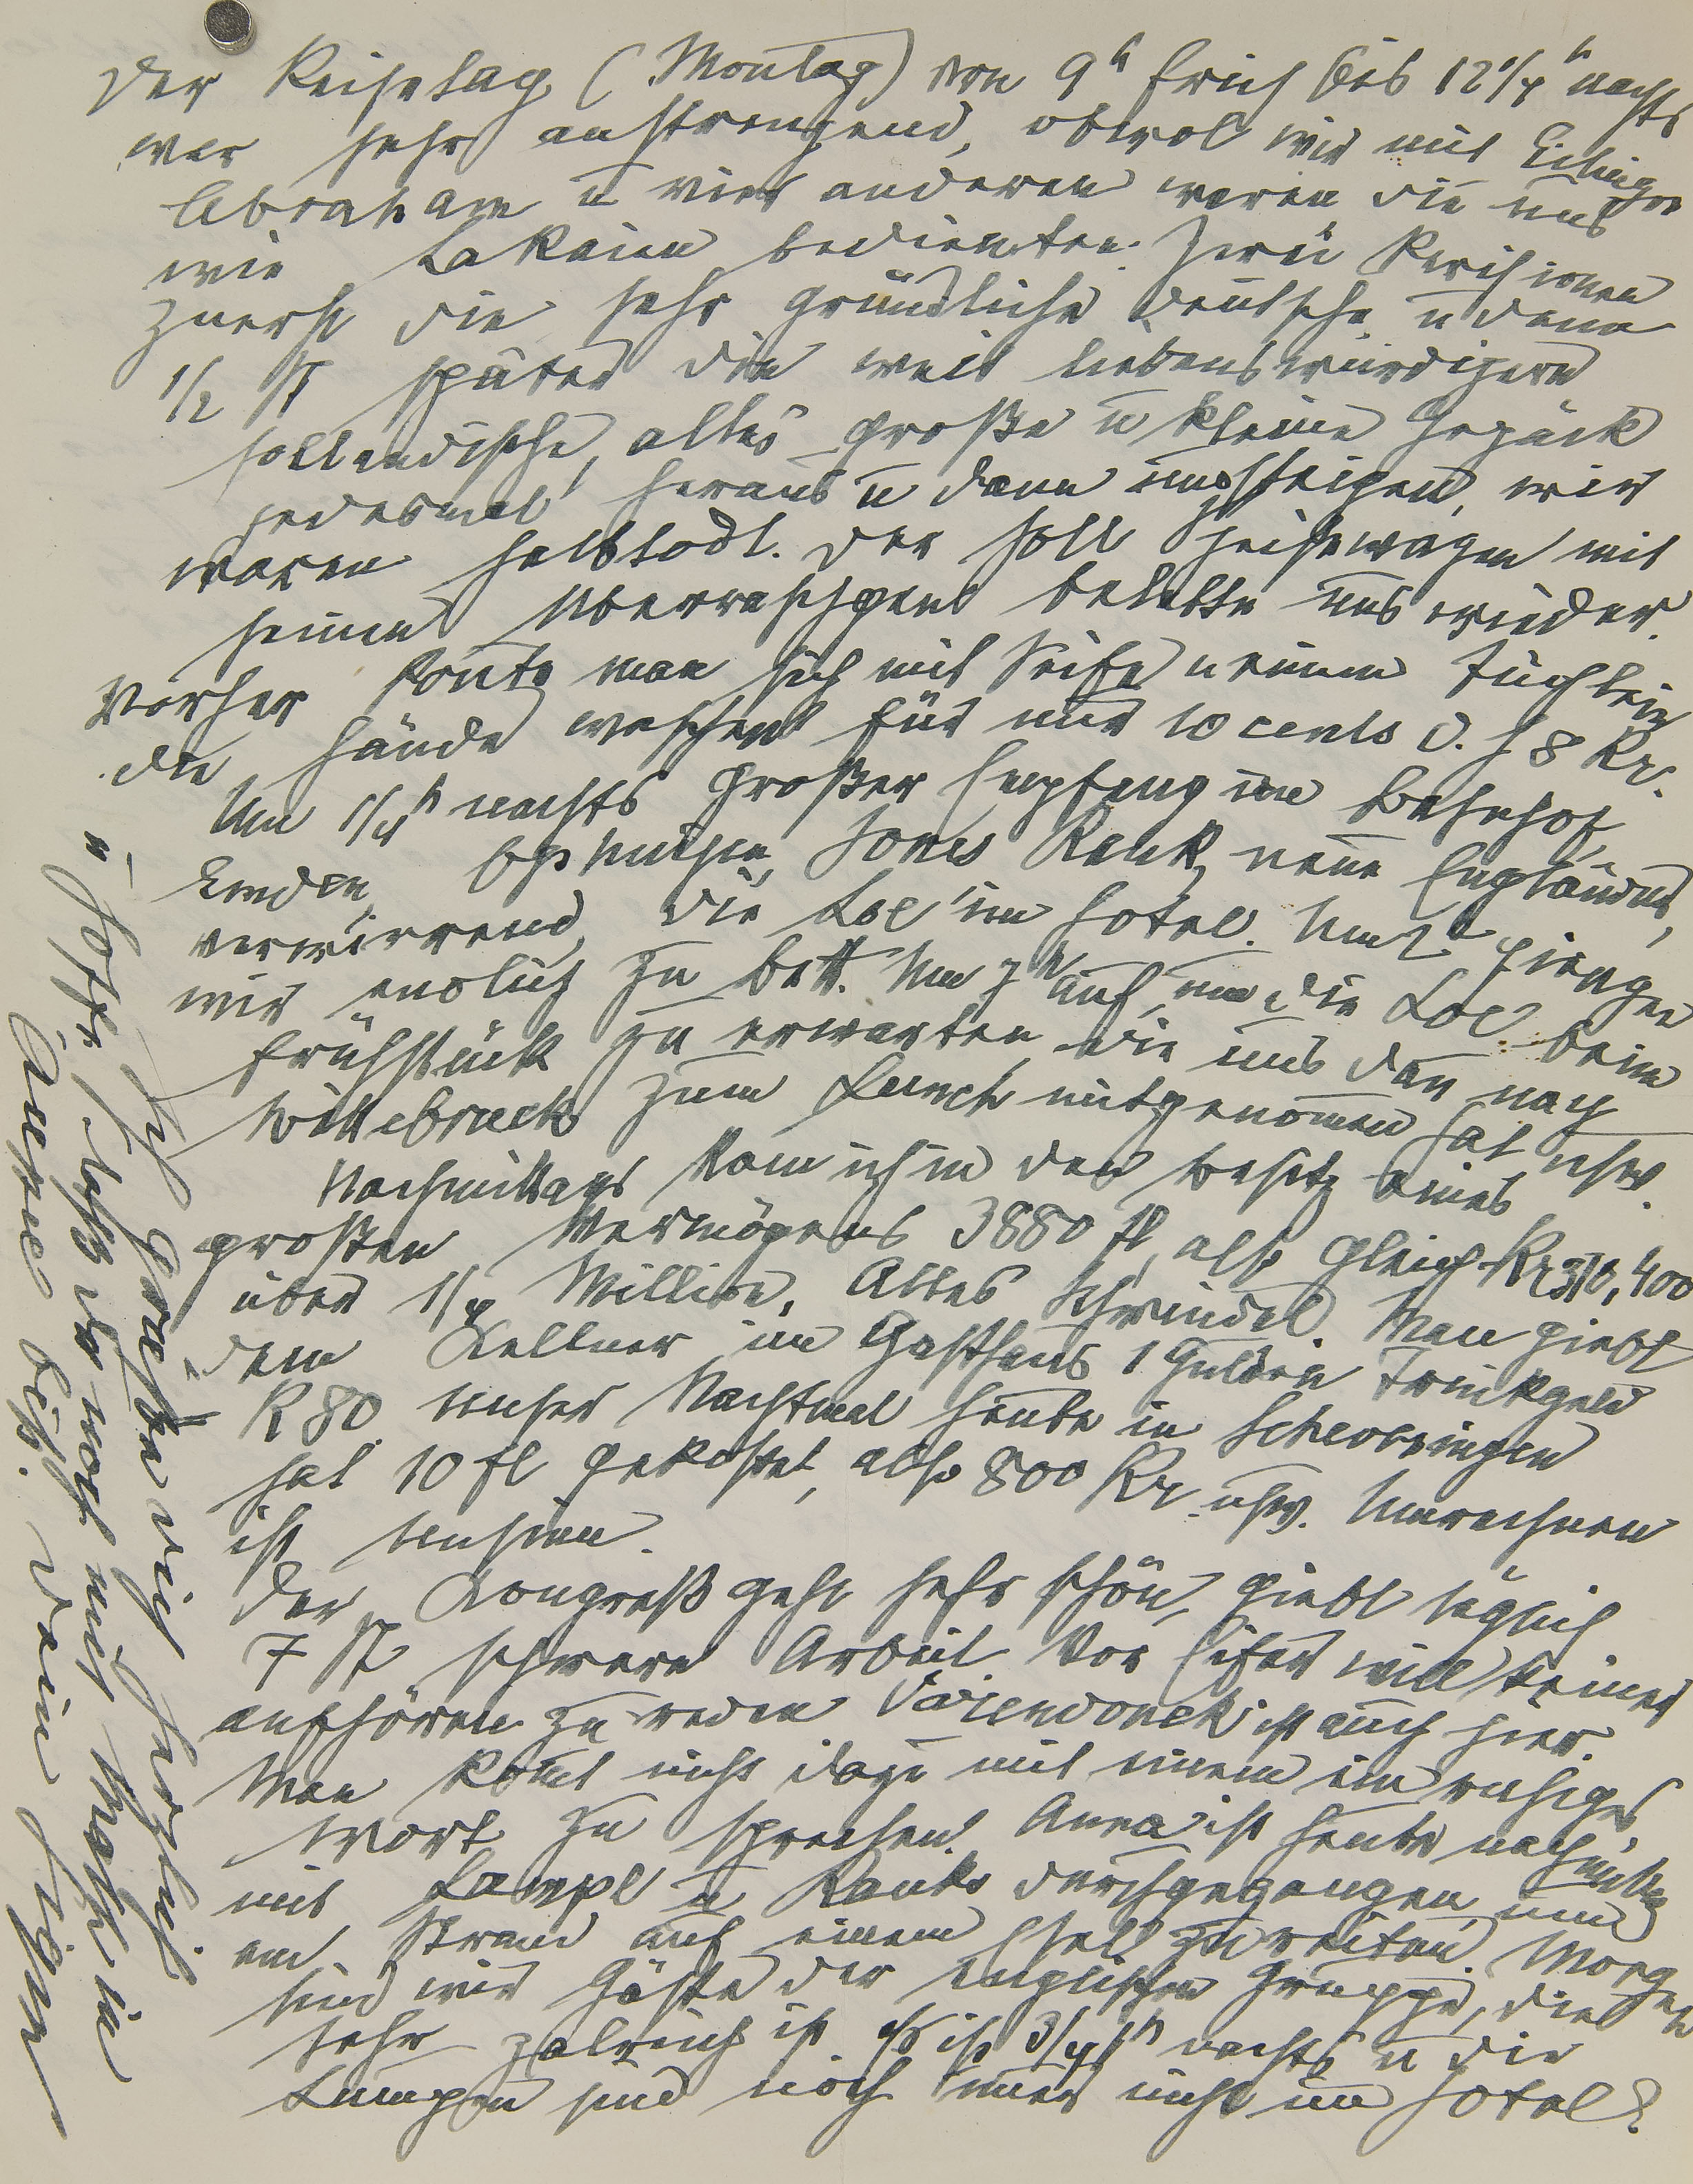 Der Reisetag (Montag) von 9h früh bis 12 1/4h nachts
war sehr anstrengend, obwol wir mit Eitingon
Abraham u vier anderen waren die uns
wie Lakaien bedienten. Zwei Revisionen
zuerst die sehr gründliche deutsche u dann
1/2 St später die weit liebenswürdigere
holländische, alles große u kleine Gepäck
jedesmal heraus u dann umsteigen, wir
waren halbtodt. Der holl Speisewagen mit
seinen belebte uns wieder.
Vorher konte man sich mit Seife u einem Tüchlein
die Hände waschen für nur 10 cents d. h 8 Kr.
Um 1/4h nachts großer Empfang im Bahnhof,
Emden, Ophuijsen, Jones Rank, neue Engländer,
verwirrend, die Loe im Hotel. Um 2h giengen
wir endlich zu Bett. Um 7h auf, um die Loe beim
Frühstück zu erwarten die uns dan nach
zum Lunch mitgenomen hat usw.
Nachmittags kam ich in den Besitz eines
großen Vermögens 3880 fl, also gleich Kr 310,400
über 1/4 Million. Alles Schwindel. Man giebt
dem Kellner im Gasthaus 1 Gulden Trinkgeld
K 80. Unser Nachtmal heute in Scheveningen
hat 10 fl gekostet, also 800 Kr usw. Umrechnen
ist Unsinn.
Der Kongreß geht sehr schön, giebt täglich
7 St schwere Arbeit. Vor Eifer will keiner
aufhören zu reden Varendonck ist auch hier.
Man komt nicht dazu mit einem ein ruhiges
Wort zu sprechen. Anna ist heute nachmittag
mit Lampl u Ranks durchgegangen, um
am Strand auf einem Esel zu reiten. Morgen
sind wir Gäste der englischen Gruppe, die
sehr zalreich ist. Es ist 3/4 1h nachts u die
Lumpen sind noch imer nicht im Hotel.
Ich grüße dich herzlich
u hoffe, daß du noch mit Math in
beis. Dein Sigm